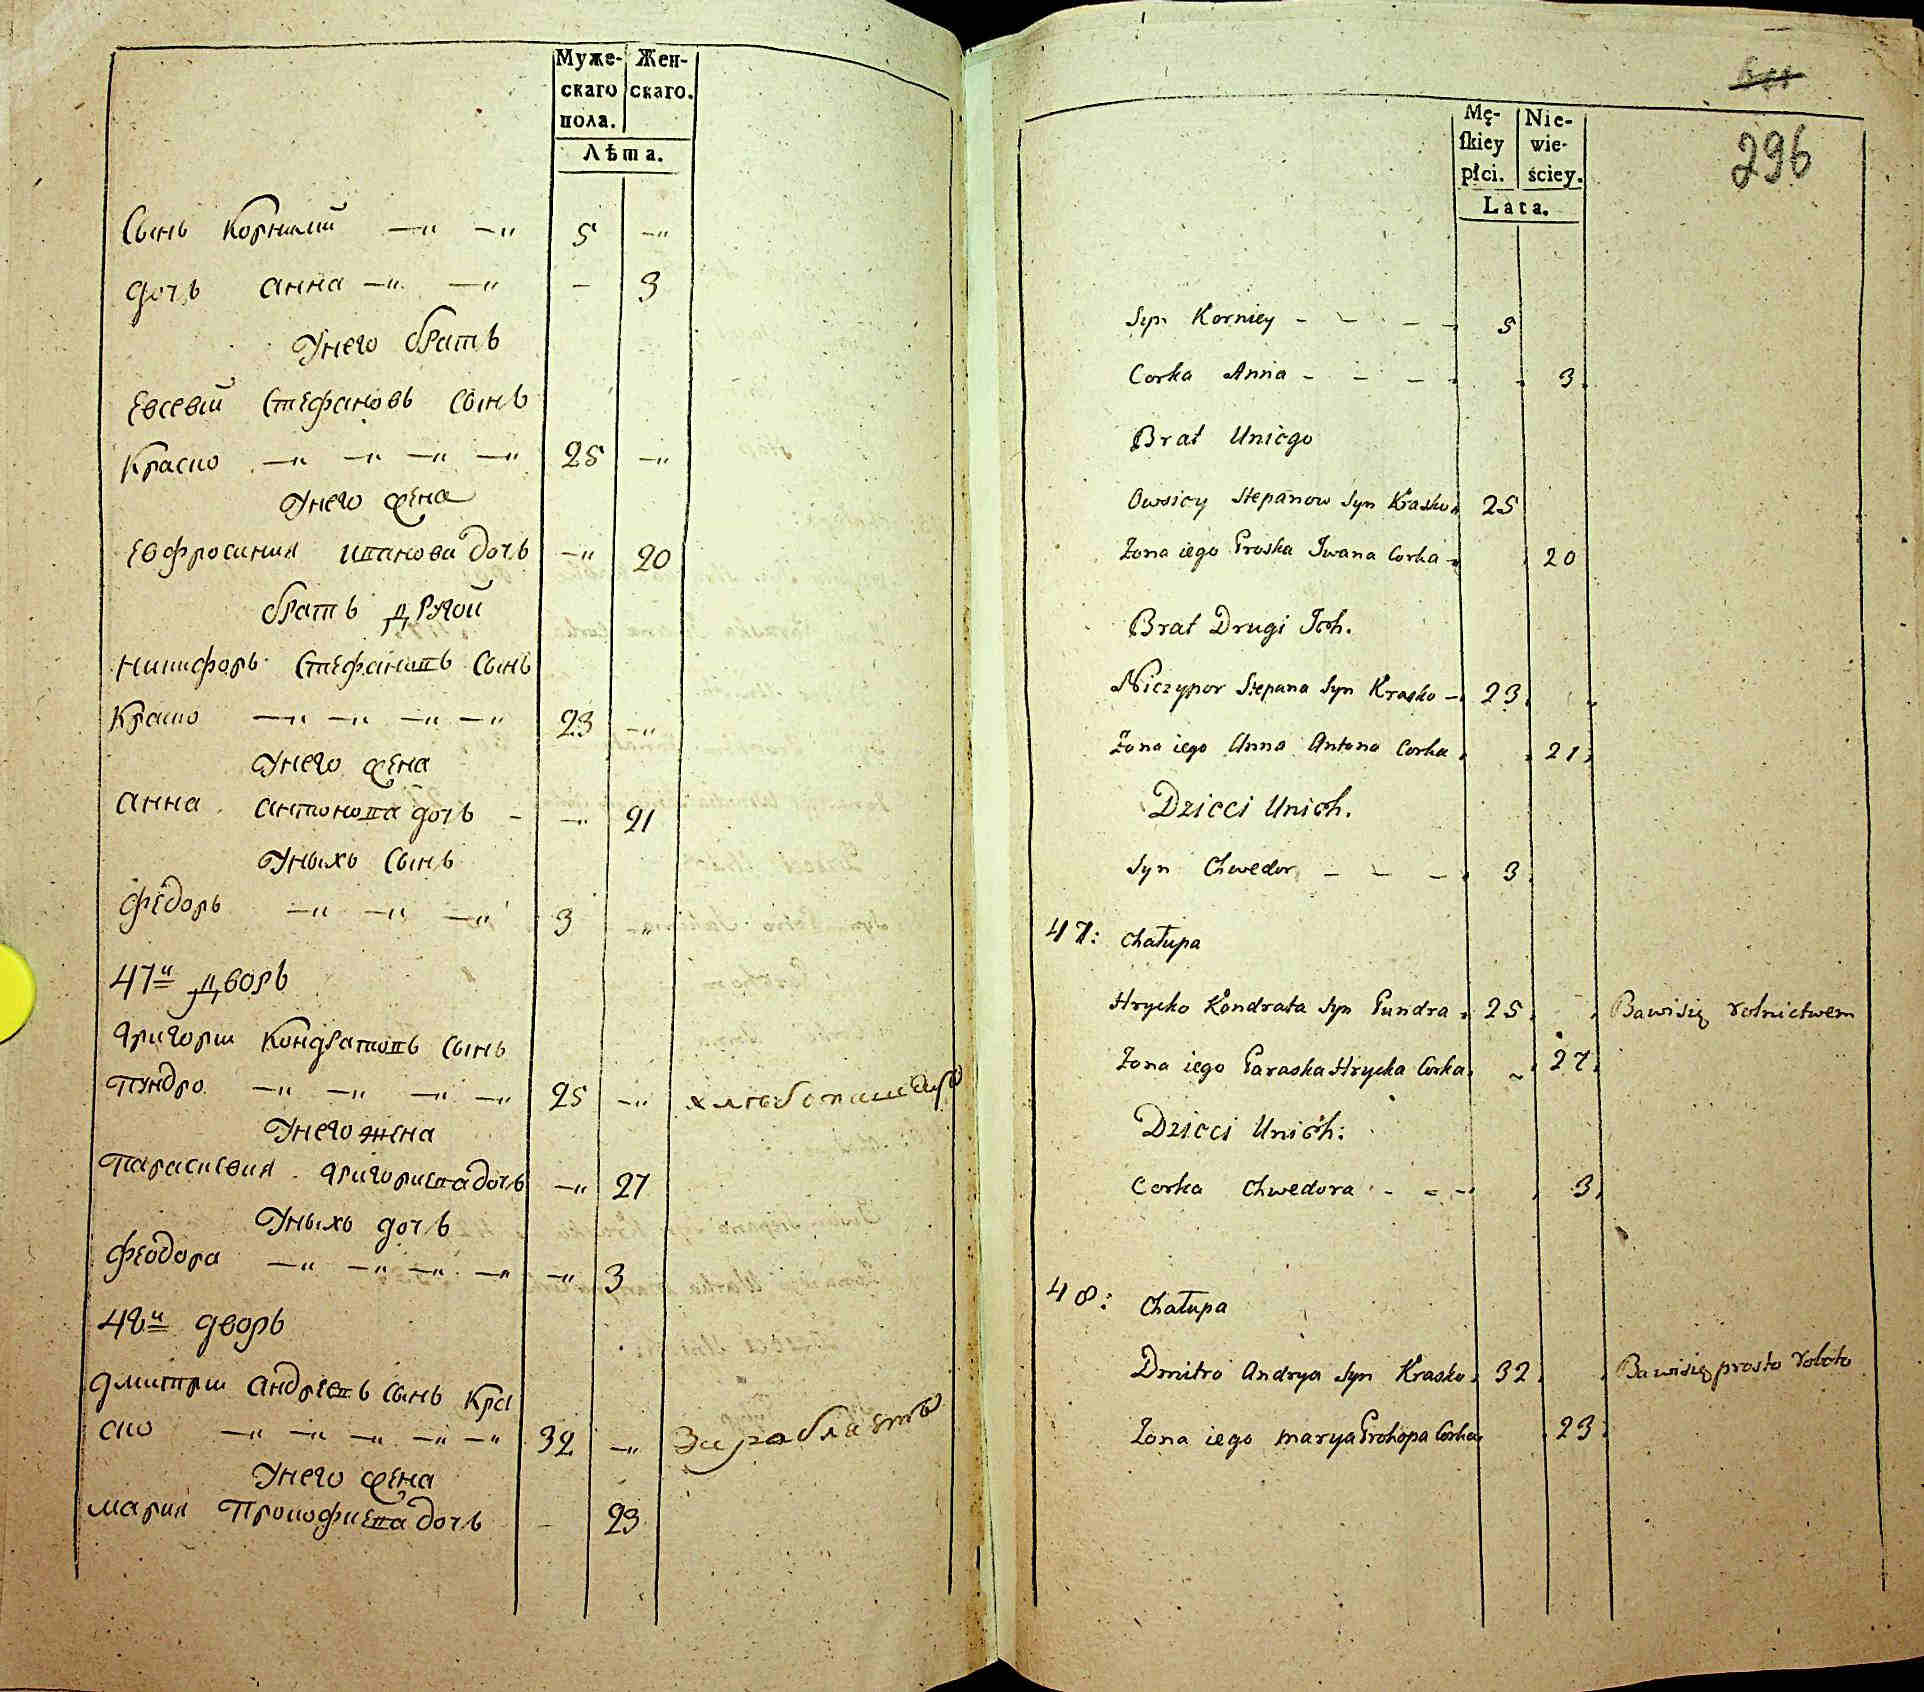 Муже- Жен-
скаго скаго.
пола.
Лѣта.
Сынъ Корнилий —„ —„ 5 —„
дочь анна —„ —„ - 3
Унего братъ
Евсевий Стефановъ Сынъ
Краско —„ —„ —„ —„ 25 —„
Унего жена
Евфросиния иванова дочь —„ 20
братъ другой
Никифоръ Стефановъ Сынъ
Краско —„ —„ —„ —„ 23 —„
Унего жена
анна антонова дочь - —„ 21
Уныхъ Сынъ
Федоръ —„ —„ —„ 3 „
47й дворъ
григорий Кондратовъ Сынъ
Пундро —„ —„ —„ —„ 25 —„ хлебопашець
Унего жена
Параскевия григориева дочь —„ 27
Уныхъ дочь
Феодора —„ —„ —„ —„ —„ 3
48й дворъ
дмитрий андреевъ Сынъ Кра
ско —„ —„ —„ —„ —„ 32 —„
Унего жена
мария Прокофиева дочь - 23
296
Mę- Nie-
skiey wie-
płci. ściey.
Lata.
Syn Korniey - - - - 5
Corka Anna - - - 3
Brat Uniego
Owsiey Stepanow Syn Krasko 25
Żona iego Proska Iwana Corka - 20
Brat Drugi Ich.
Niczypor Stepana Syn Krasko - 23
Żona iego Anna Antona Corka 21
Dzieci Unich.
Syn Chwedor - - - 3
47: Chałupa
Hrycko Kondrata Syn Pundra 25 Bawisię rolnictwem
Żona iego Paraska Hrycka Corka 27
Dzieci Unich:
Corka Chwedora - - - 3
48: Chałupa
Dmitro Andrya Syn Krasko 32 Bawisię prosto roboto
Żona iego Marya Prokopa Corka 23